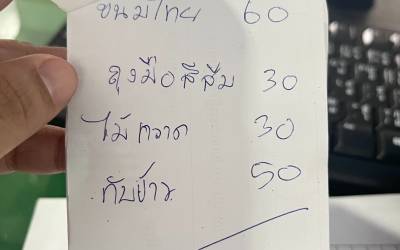 ขนมไทย 60
ถุงมือสีส้ม 30
ไม้กวาด 30
กับข้าว 50